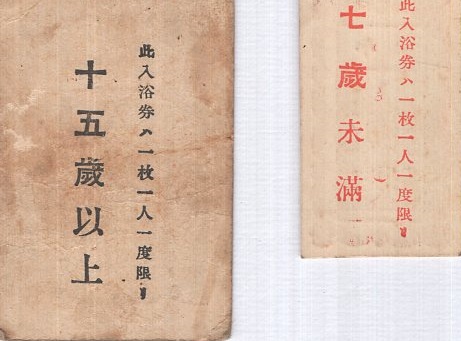 此入浴券ハ一枚一人一度限リ
十五歲以上
此入浴券ハ一枚一人一度限リ
七歲未滿